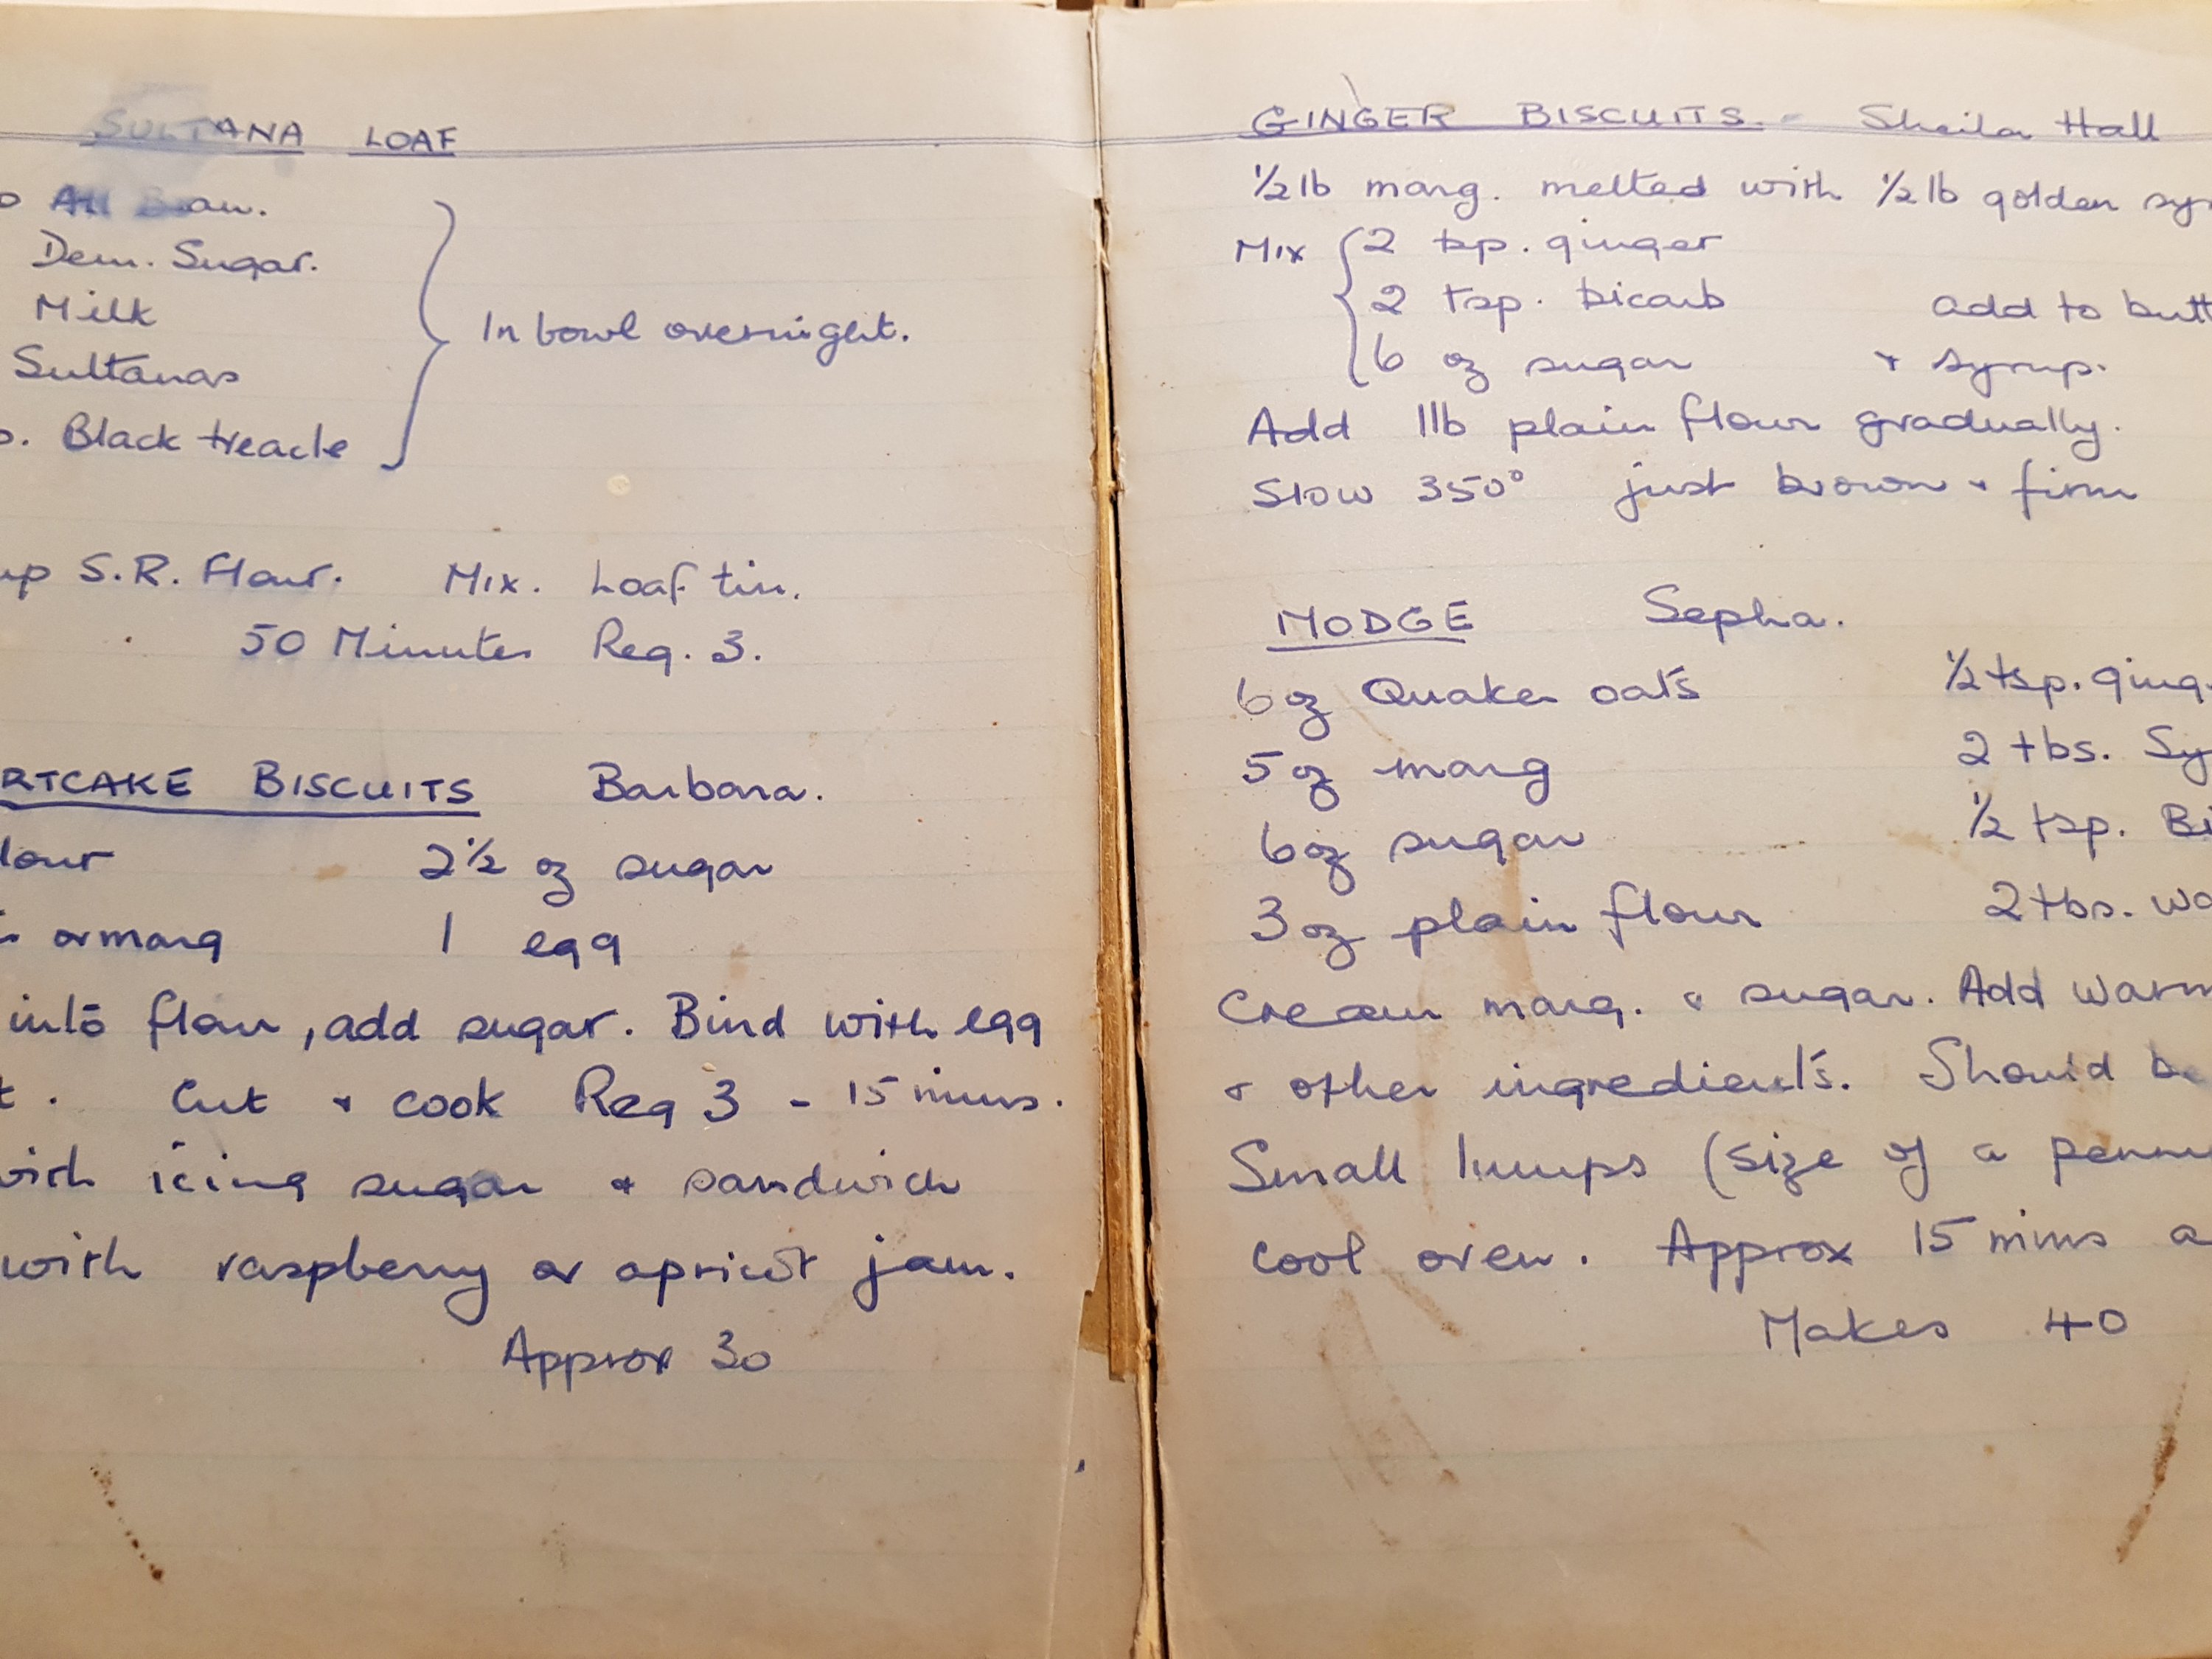 SULTANA LOAF
All Bran.
Dem. Sugar.
Milk
In bowl overnight.
Sultanas
Black treacle
up S.R. Flour. Mix. Loaf tin.
50 Minutes Reg. 3.
RTCAKE BISCUITS Barbara.
lour 2½ oz sugar
or marg 1 egg
into flour, add sugar. Bind with egg
t. Cut & cook Reg 3 - 15 mins.
with icing sugar & sandwich
with raspberry or apricot jam.
Approx 30
GINGER BISCUITS. - Sheila Hall
½ lb marg. melted with ½ lb golden sy
Mix { 2 tsp. ginger
2 tsp. bicarb add to butt
6 oz sugar & syrup.
Add 1lb plain flour gradually.
Slow 350° just brown & firm
MODGE Sepha.
6 oz Quaker oats ½ tsp. ging
5 oz marg 2 tbs. Sy
6 oz sugar ½ tsp. Bi
3 oz plain flour 2 tbs. wa
Cream marg. & sugar. Add warm
& other ingredients. Should be
Small lumps (size of a penn
cool oven. Approx 15 mins a
Makes 40